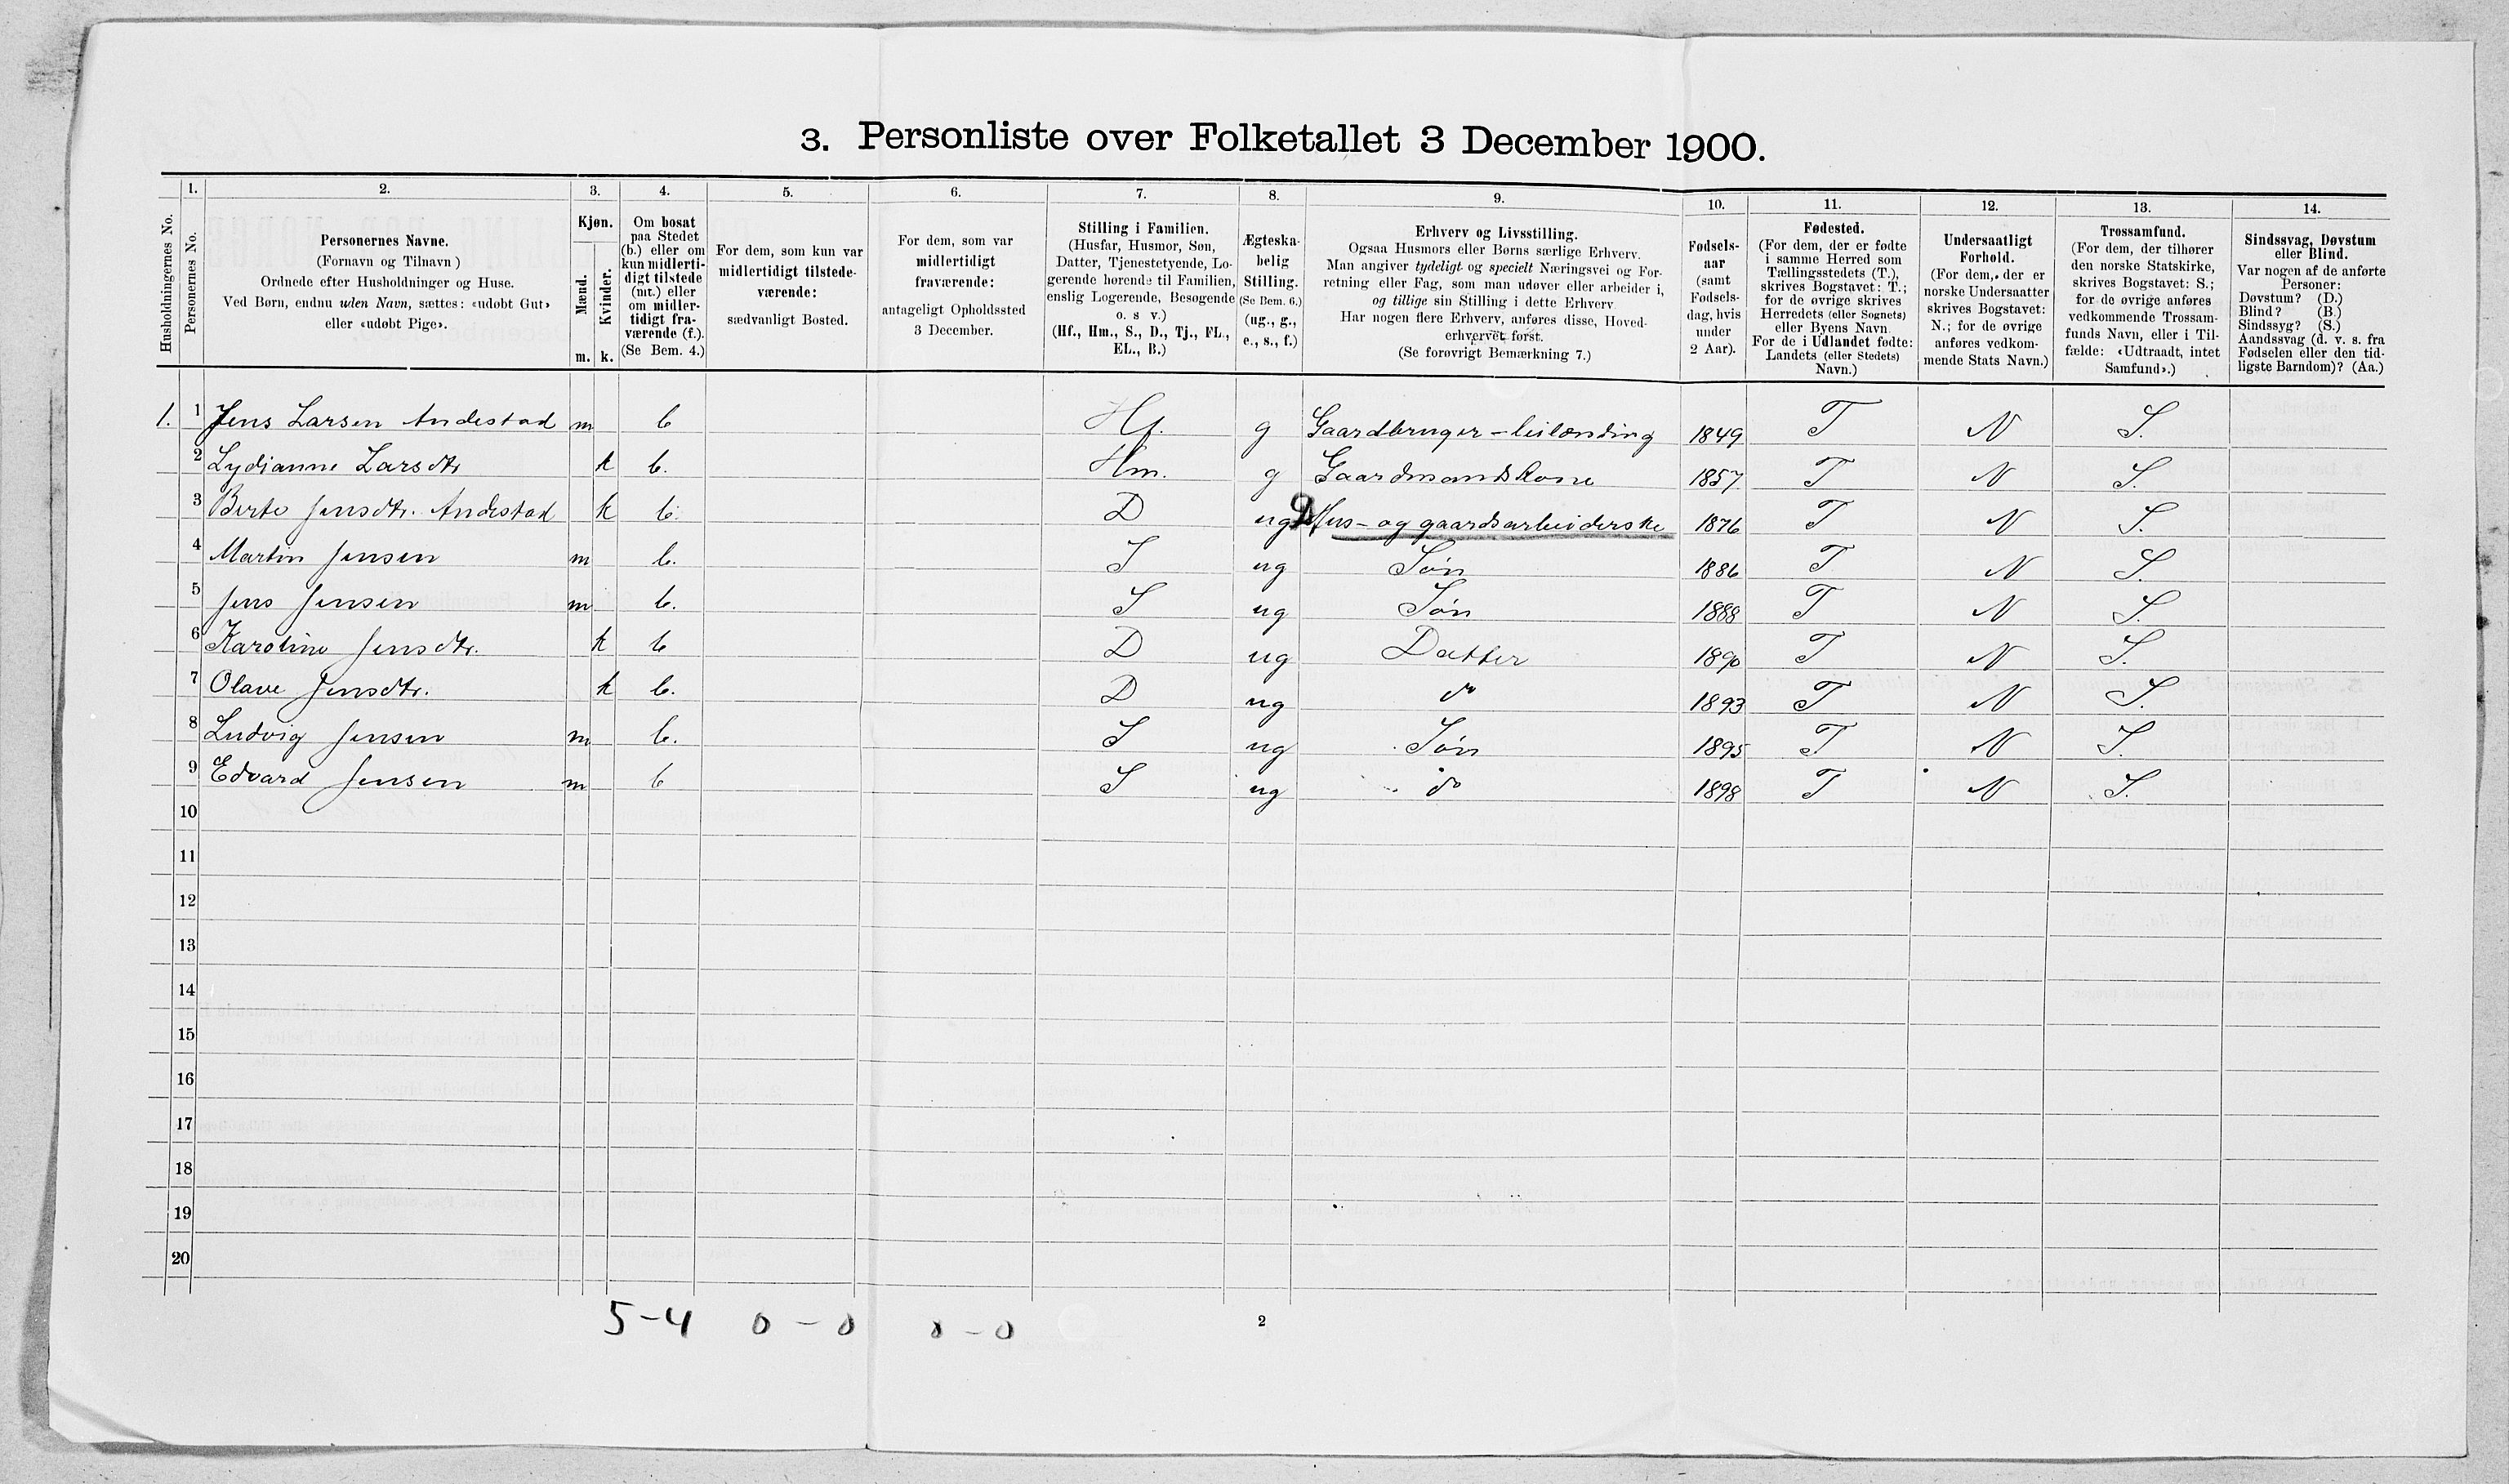 3. Personliste over Folketallet 3 December 1900.
1. 2. 3. 4. 5. 6. 7. 8. 9. 10. 11. 12. 13. 14.
Husholdningernes No.
Personernes No.
Personernes Navne.
(Fornavn og Tilnavn)
Ordnede efter Husholdninger og Huse.
Ved Børn, endnu uden Navn, sættes: «udøbt Gut»
eller «udøbt Pige».
Kjøn.
Mænd.
Kvinder.
m. k.
Om bosat
paa Stedet
(b.) eller om
kun midlerti-
digt tilstede
(mt.) eller
om midler-
tidigt fra-
værende (f.).
(Se Bem. 4.)
For dem, som kun var
midlertidigt tilstede-
værende:
sædvanligt Bosted.
For dem, som var
midlertidigt
fraværende:
antageligt Opholdssted
3 December.
Stilling i Familien.
(Husfar, Husmor, Søn,
Datter, Tjenestetyende, Lo-
gerende hørende til Familien,
enslig Logerende, Besøgende
o. s v.)
(Hf., Hm., S., D., Tj., FL.,
EL., B.)
Ægteska-
belig
Stilling.
(Se Bem. 6.)
(ug., g.,
e., s., f.)
Erhverv og Livsstilling.
Ogsaa Husmors eller Børns særlige Erhverv.
Man angiver tydeligt og specielt Næringsvei og For-
retning eller Fag, som man udøver eller arbeider i,
og tillige sin Stilling i dette Erhverv
Har nogen flere Erhverv, anføres disse, Hoved-
erhvervet først.
(Se forøvrigt Bemærkning 7.)
Fødsels-
aar
(samt
Fødsels-
dag, hvis
under
2 Aar).
Fødested.
(For dem, der er fødte
i samme Herred som
Tællingsstedets (T.),
skrives Bogstavet: T.;
for de øvrige skrives
Herredets (eller Sognets)
eller Byens Navn
For de i Udlandet fødte:
Landets (eller Stedets)
Navn.)
Undersaatligt
Forhold.
(For dem, der er
norske Undersaatter
skrives Bogstavet:
N.; for de øvrige
anføres vedkom-
mende Stats Navn.)
Trossamfund.
(For dem, der tilhører
den norske Statskirke,
skrives Bogstavet: S.;
for de øvrige anføres
vedkommende Trossam-
funds Navn, eller i Til-
fælde: «Udtraadt, intet
Samfund».)
Sindssvag, Døvstum
eller Blind.
Var nogen af de anførte
Personer:
Døvstum? (D.)
Blind? (B.)
Sindssyg? (S.)
Aandssvag (d. v. s. fra
Fødselen eller den tid-
ligste Barndom)? (Aa.)
1. 1 Jens Larsen Andestad m b Hf. g Gaardbruger - leilænding 1849 T N S.
2 Lydianne Larsdtr k b. Hm. g Gaardmandskone 1857 T N S.
3 Berte Jensdtr. Andestad k b. D ug Hus- og gaardsarbeiderske 1876 T N S.
4 Martin Jensen m b. S ug Søn 1886 T N S.
5 Jens Jensen m b. S ug Søn 1888 T N S.
6 Karoline Jensdtr. k b D ug Datter 1890 T N S.
7 Olave Jensdtr. k b. D ug do 1893 T N S.
8 Ludvig Jensen m b. S ug Søn 1895 T N S.
9 Edvard Jensen m b S ug do 1898 T N S.
10
11
12
13
14
15
16
17
18
19
20
5-4 0-0 0-0
2